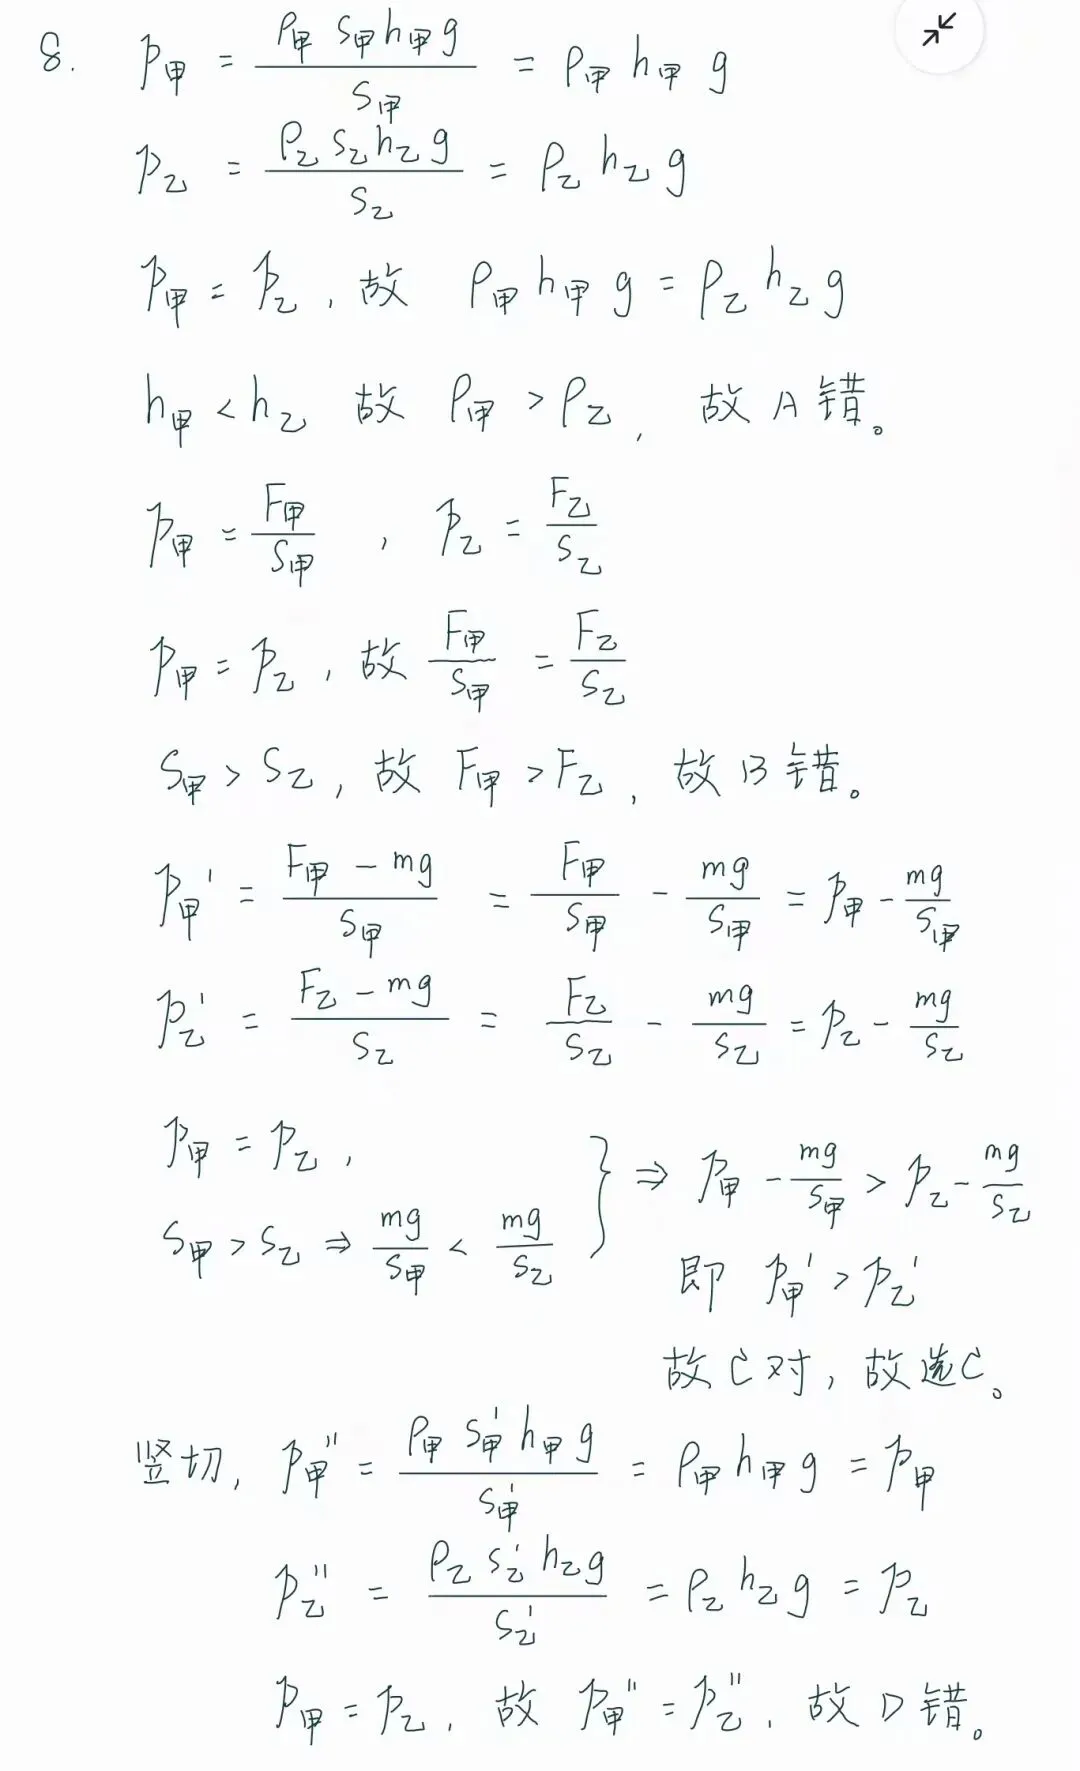 8. p甲 = ρ甲 S甲 h甲 g / S甲 = ρ甲 h甲 g
p乙 = ρ乙 S乙 h乙 g / S乙 = ρ乙 h乙 g
p甲 = p乙, 故 ρ甲 h甲 g = ρ乙 h乙 g
h甲 < h乙 故 ρ甲 > ρ乙, 故A错。
p甲 = F甲 / S甲, p乙 = F乙 / S乙
p甲 = p乙, 故 F甲 / S甲 = F乙 / S乙
S甲 > S乙, 故 F甲 > F乙, 故B错。
p甲' = (F甲 - mg) / S甲 = F甲 / S甲 - mg / S甲 = p甲 - mg / S甲
p乙' = (F乙 - mg) / S乙 = F乙 / S乙 - mg / S乙 = p乙 - mg / S乙
p甲 = p乙,
S甲 > S乙 ⇒ mg / S甲 < mg / S乙
} ⇒ p甲 - mg / S甲 > p乙 - mg / S乙
即 p甲' > p乙'
故C对, 故选C。
竖切, p甲'' = ρ甲 S甲' h甲 g / S甲' = ρ甲 h甲 g = p甲
p乙'' = ρ乙 S乙' h乙 g / S乙' = ρ乙 h乙 g = p乙
p甲 = p乙, 故 p甲'' = p乙'', 故D错。